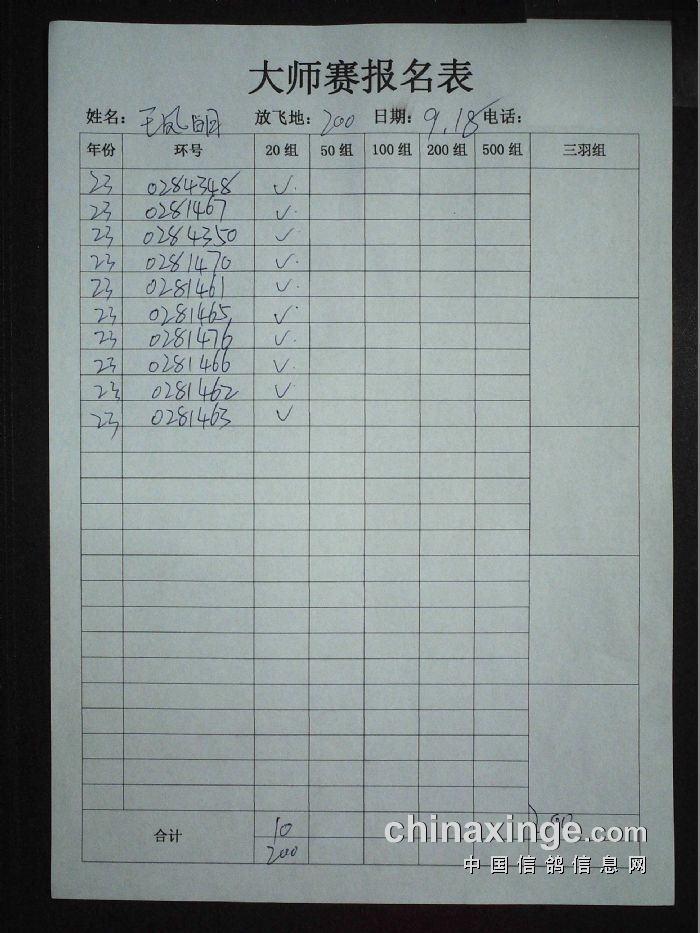 大师赛报名表
姓名：王凤明 放飞地：200 日期：9.18 电话：
年份 环号 20组 50组 100组 200组 500组 三羽组
23 0284348 ✓
23 0281467 ✓
23 0284350 ✓
23 0281470 ✓
23 0281461 ✓
23 0281465 ✓
23 0281476 ✓
23 0281466 ✓
23 0281462 ✓
23 0281463 ✓
合计 10
200
chinaxinge.com
中国信鸽信息网